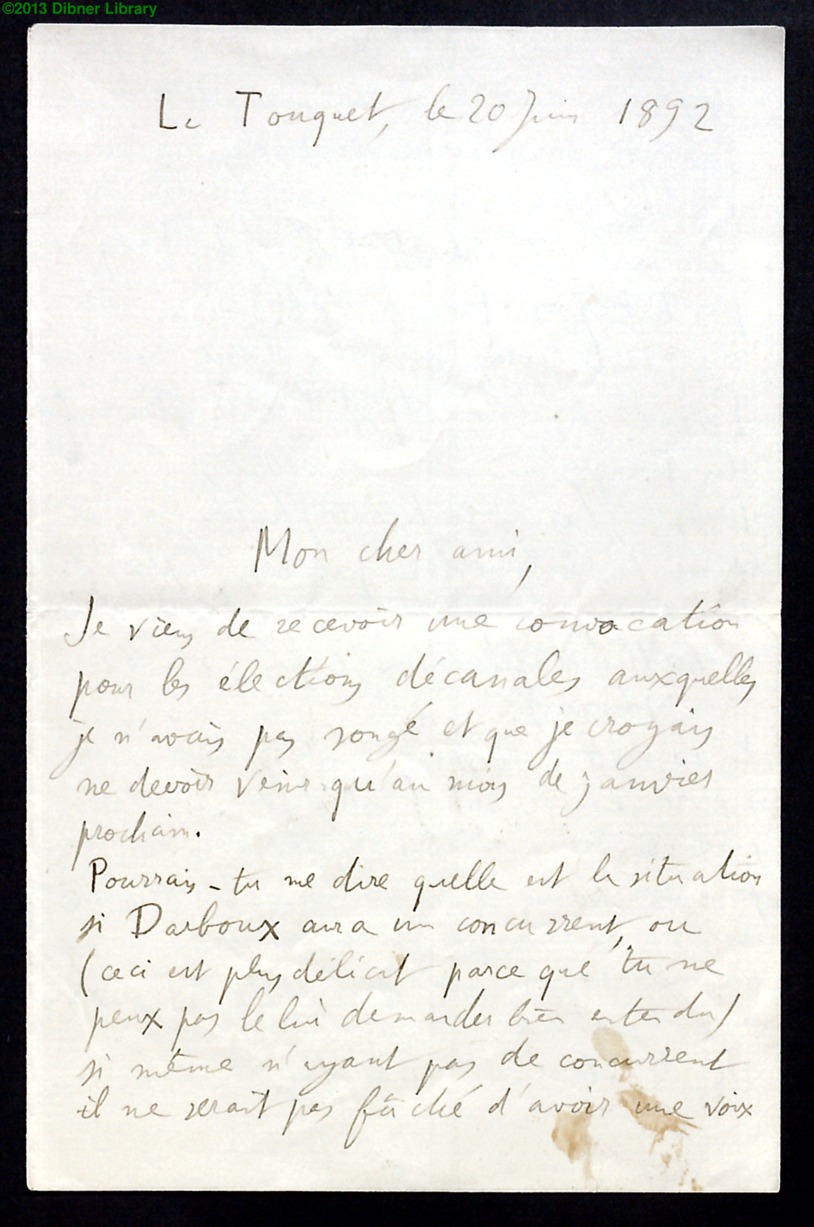 ©2013 Dibner Library
Le Touquet, le 20 Juin 1892
Mon cher ami,
Je viens de recevoir une convocation
pour les élections décanales auxquelles
je n'avais pas songé et que je croyais
ne devoir venir qu'au mois de janvier
prochain.
Pourrais-tu me dire quelle est la situation
si Darboux aura un concurrent, ou
(ceci est plus délicat parce que tu ne
peux pas le lui demander bien entendu)
si même n'ayant pas de concurrent
il ne serait pas fâché d'avoir une voix